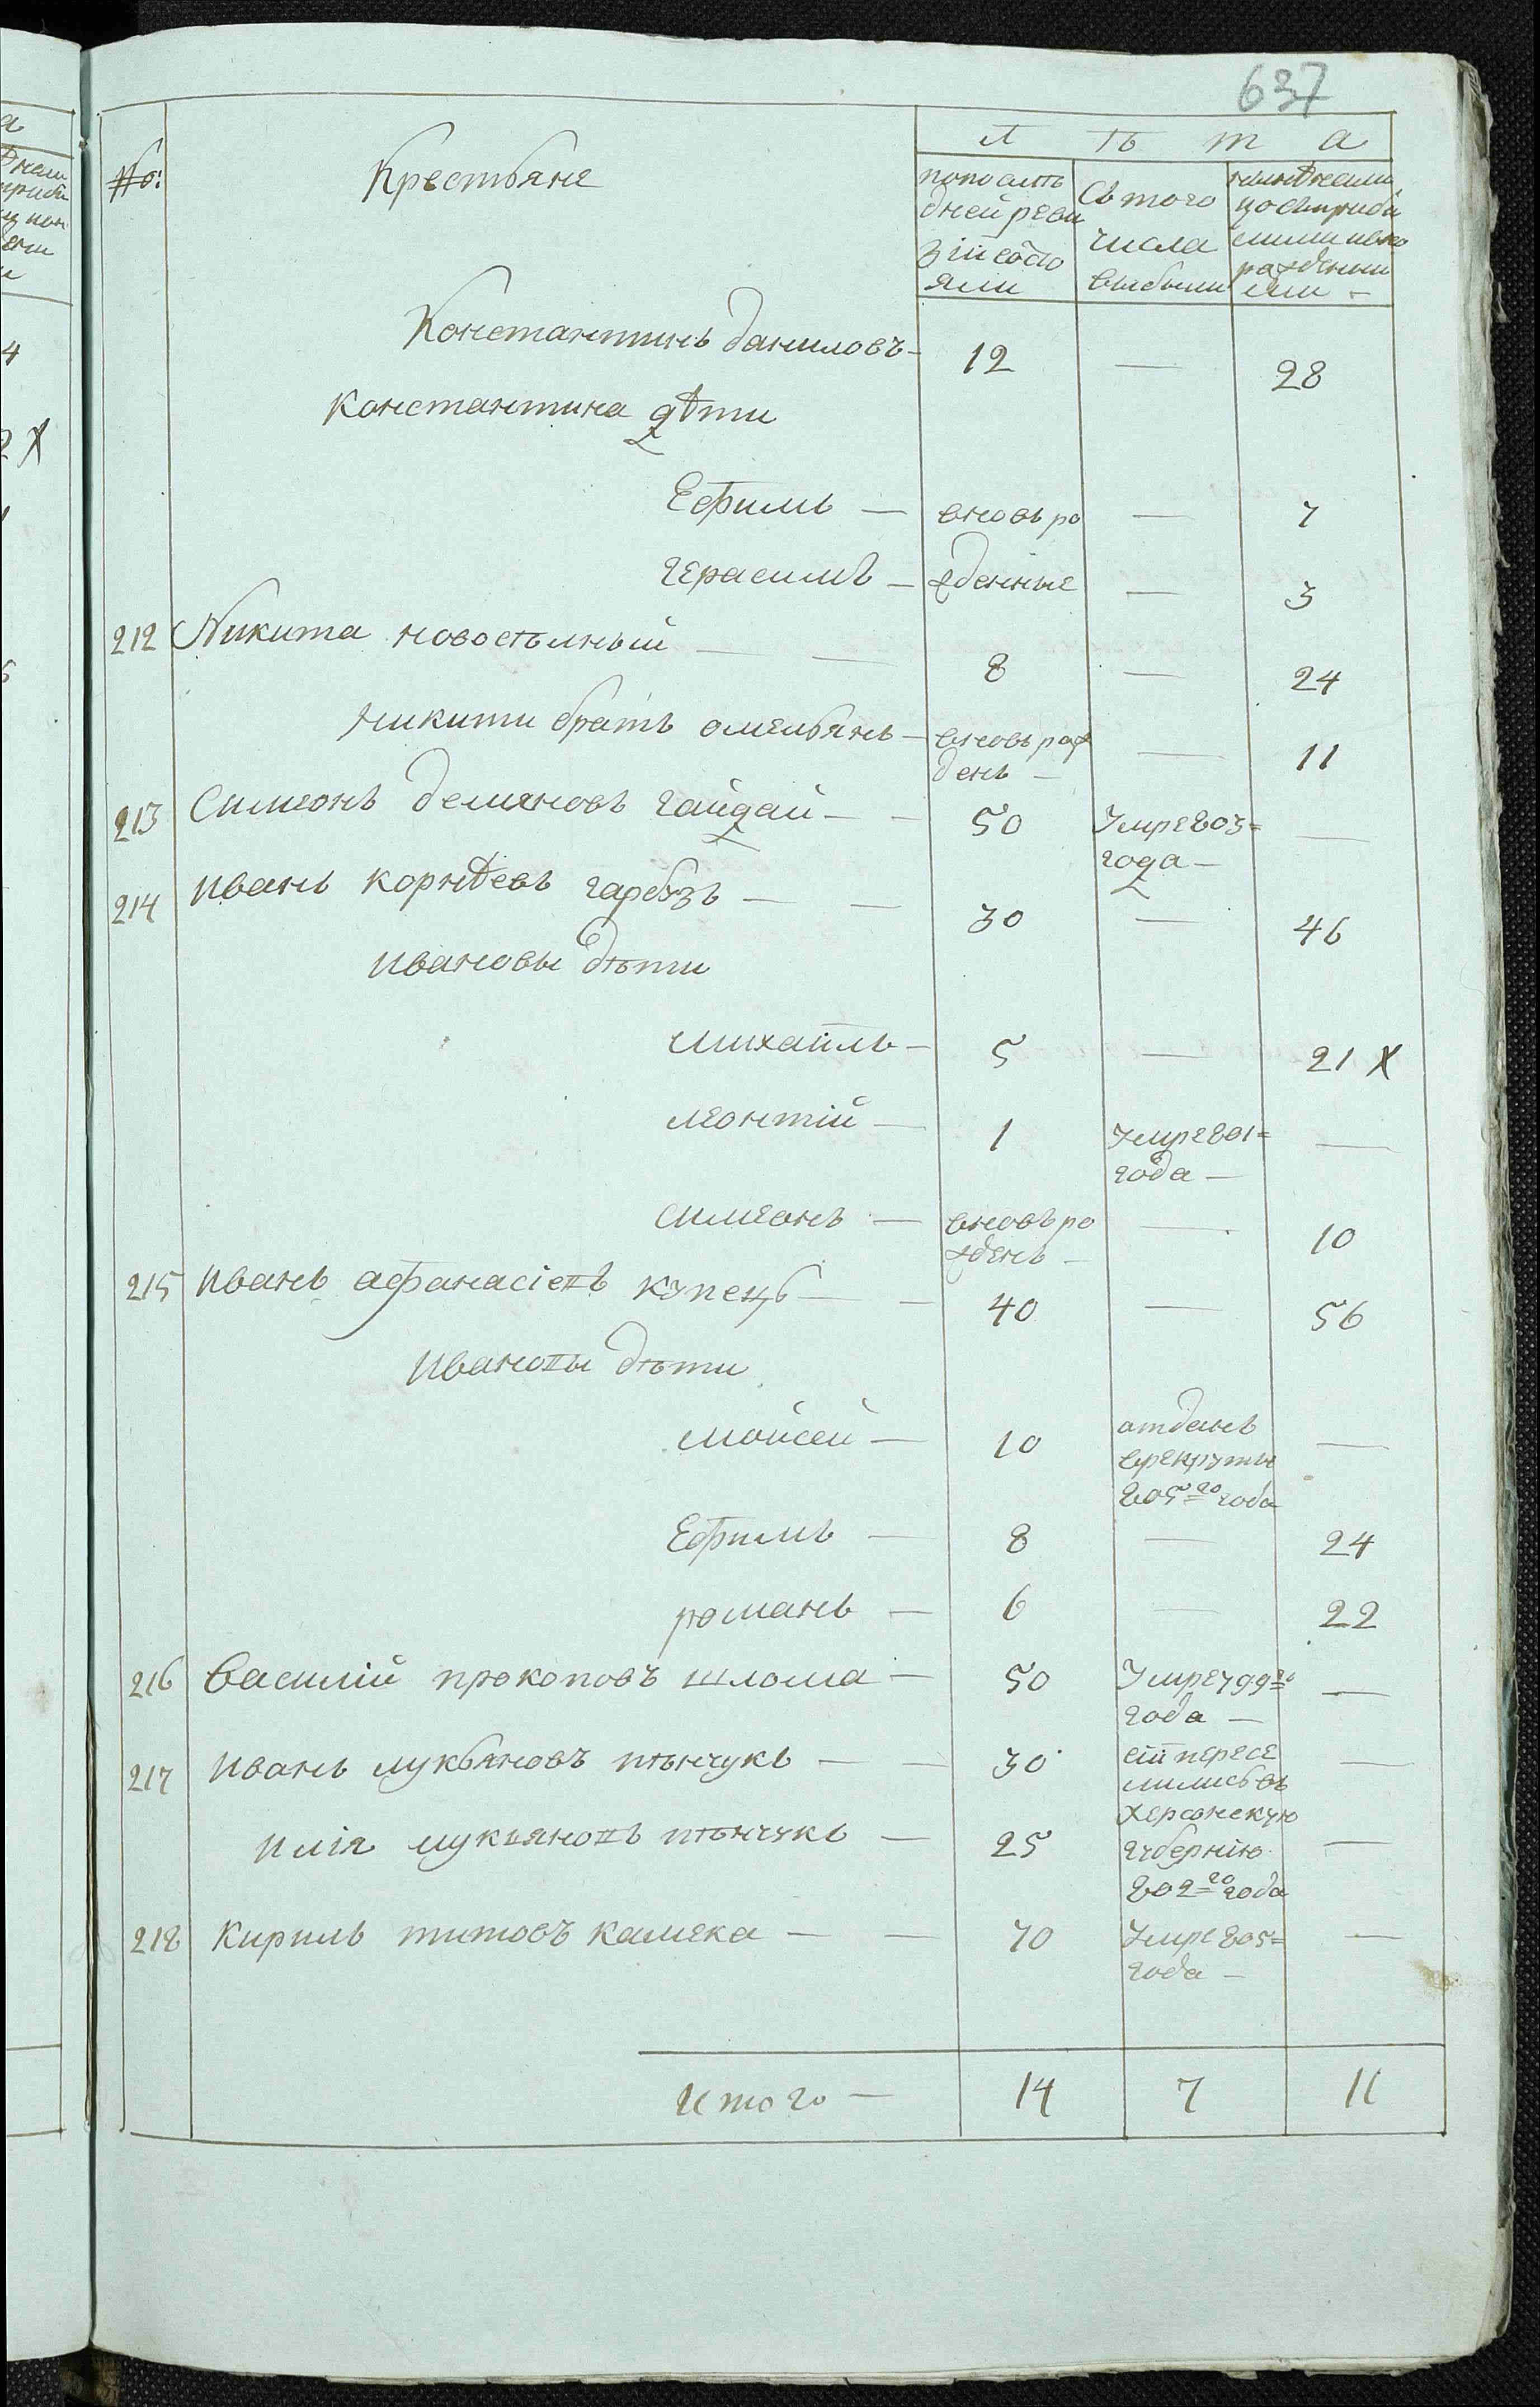 637
№:
Крестьяне
лѣта
попослѣ
дней реви
зіи состо
яли
Съ того
числа
выбыли
рожденны
ми –
Константинъ Даниловъ – 12 — 28
Константина дѣти
Ефимъ — вновь ро — 7
Герасимъ – жденные — 3
212 Никита новосѣлный — — 8 — 24
Никити братъ омельянъ – вновь рож
денъ – — 11
213 Симеонъ демяновъ гайдай – – 50 Умре 803=
года – —
214 Иванъ корнѣевъ гарбузъ — — 30 — 46
Ивановы дѣти
Михаилъ – 5 — 21 X
леонтій — 1 Умре 801=
года — —
Симеонъ — вновь ро
жденъ – — 10
215 Иванъ афанасіевъ купецъ — — 40 — 56
Ивановы дѣти
Мойсей — 10 отданъ
врекруты
805го года —
Ефимъ — 8 — 24
романъ — 6 — 22
216 Василій прокоповъ шлома — 50 Умре 799го
года — —
217 Иванъ лукьяновъ пѣнчукъ — — 30 сіи пересе
лились въ —
Херсонскую
Илія лукьяновъ пѣнчукъ — 25 губернію —
802го года
218 Кирилъ титовъ камека — — 70 Умре 805=
года — —
Итого — 14 7 11
4
2 X